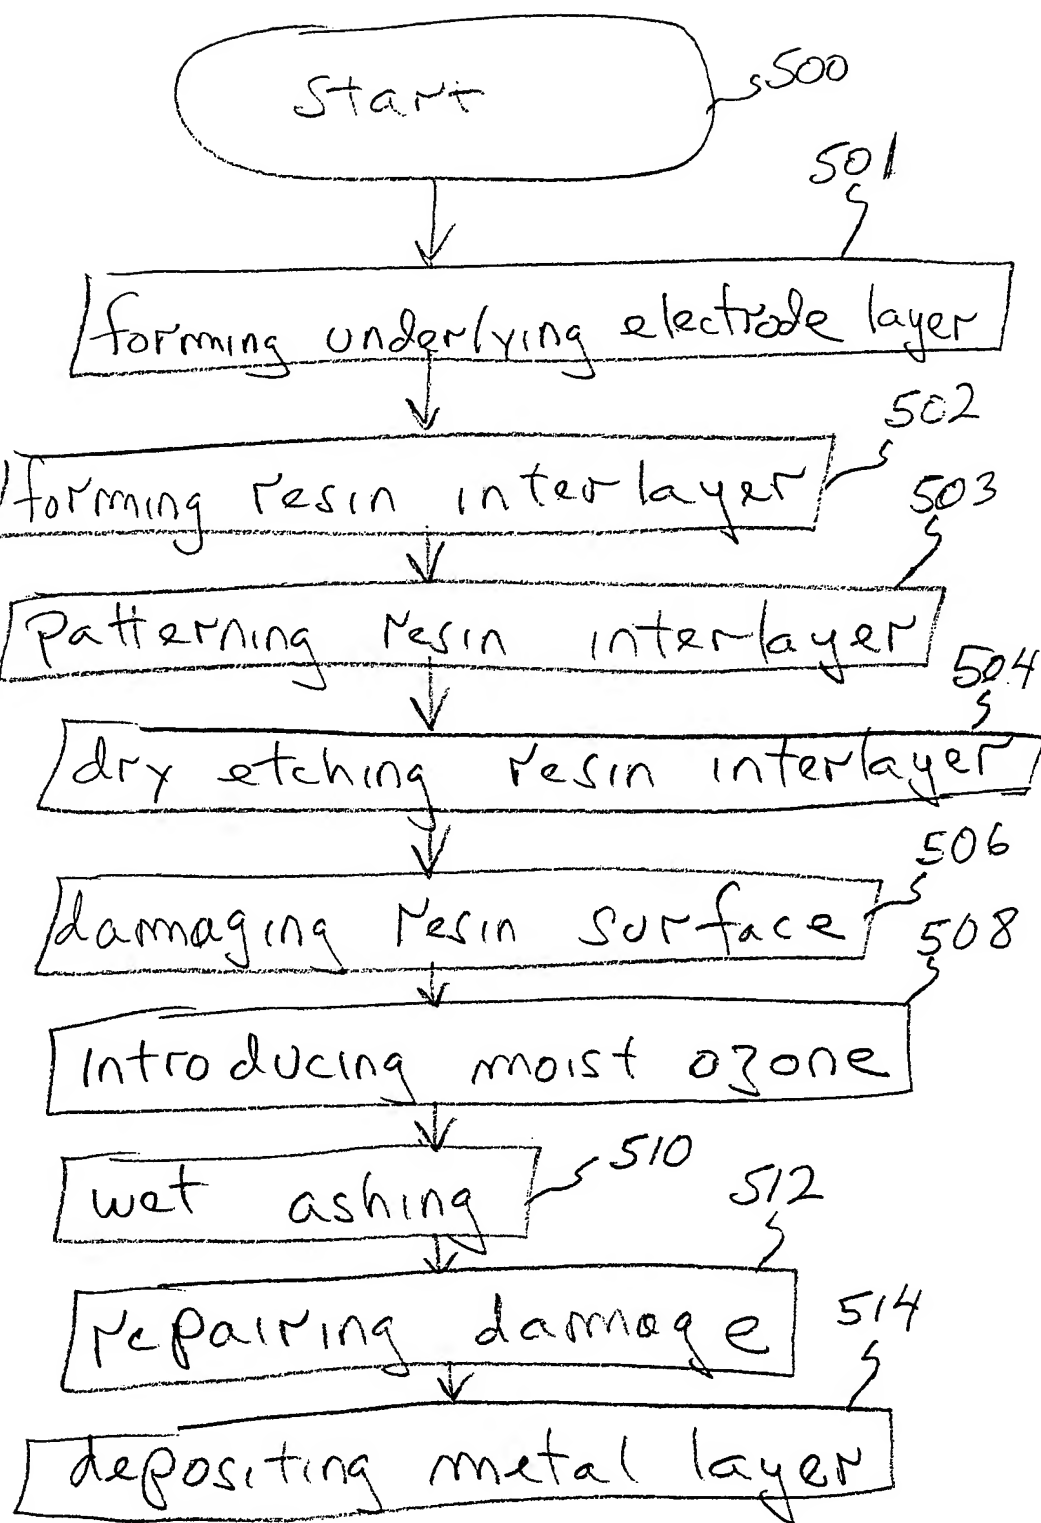 start
500
501
forming underlying electrode layer
502
forming resin interlayer
503
patterning resin interlayer
504
dry etching resin interlayer
506
damaging resin surface
508
introducing moist ozone
510
wet ashing
512
repairing damage
514
depositing metal layer